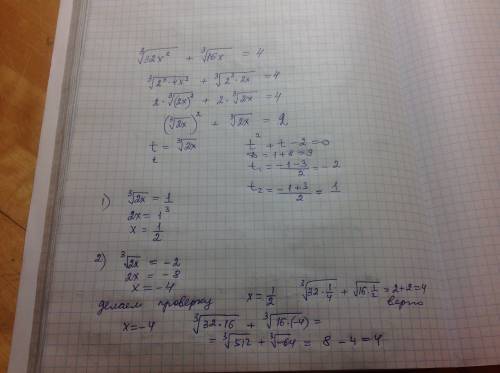 ∛32x² + ∛16x = 4
∛2³·4x² + ∛2³·2x = 4
2·∛(2x)² + 2·∛2x = 4
(∛2x)² + ∛2x = 2
t = ∛2x
t
t² + t - 2 = 0
D = 1 + 8 = 9
t₁ = (-1-3)/2 = -2
t₂ = (-1+3)/2 = 1
1) ∛2x = 1
2x = 1³
x = 1/2
2) ∛2x = -2
2x = -8
x = -4
делаем проверку
x = 1/2 ∛32·1/4 + √16·1/2 = 2+2=4
верно
x=-4 ∛32·16 + ∛16·(-4) =
= ∛512 + ∛-64 = 8 - 4 = 4